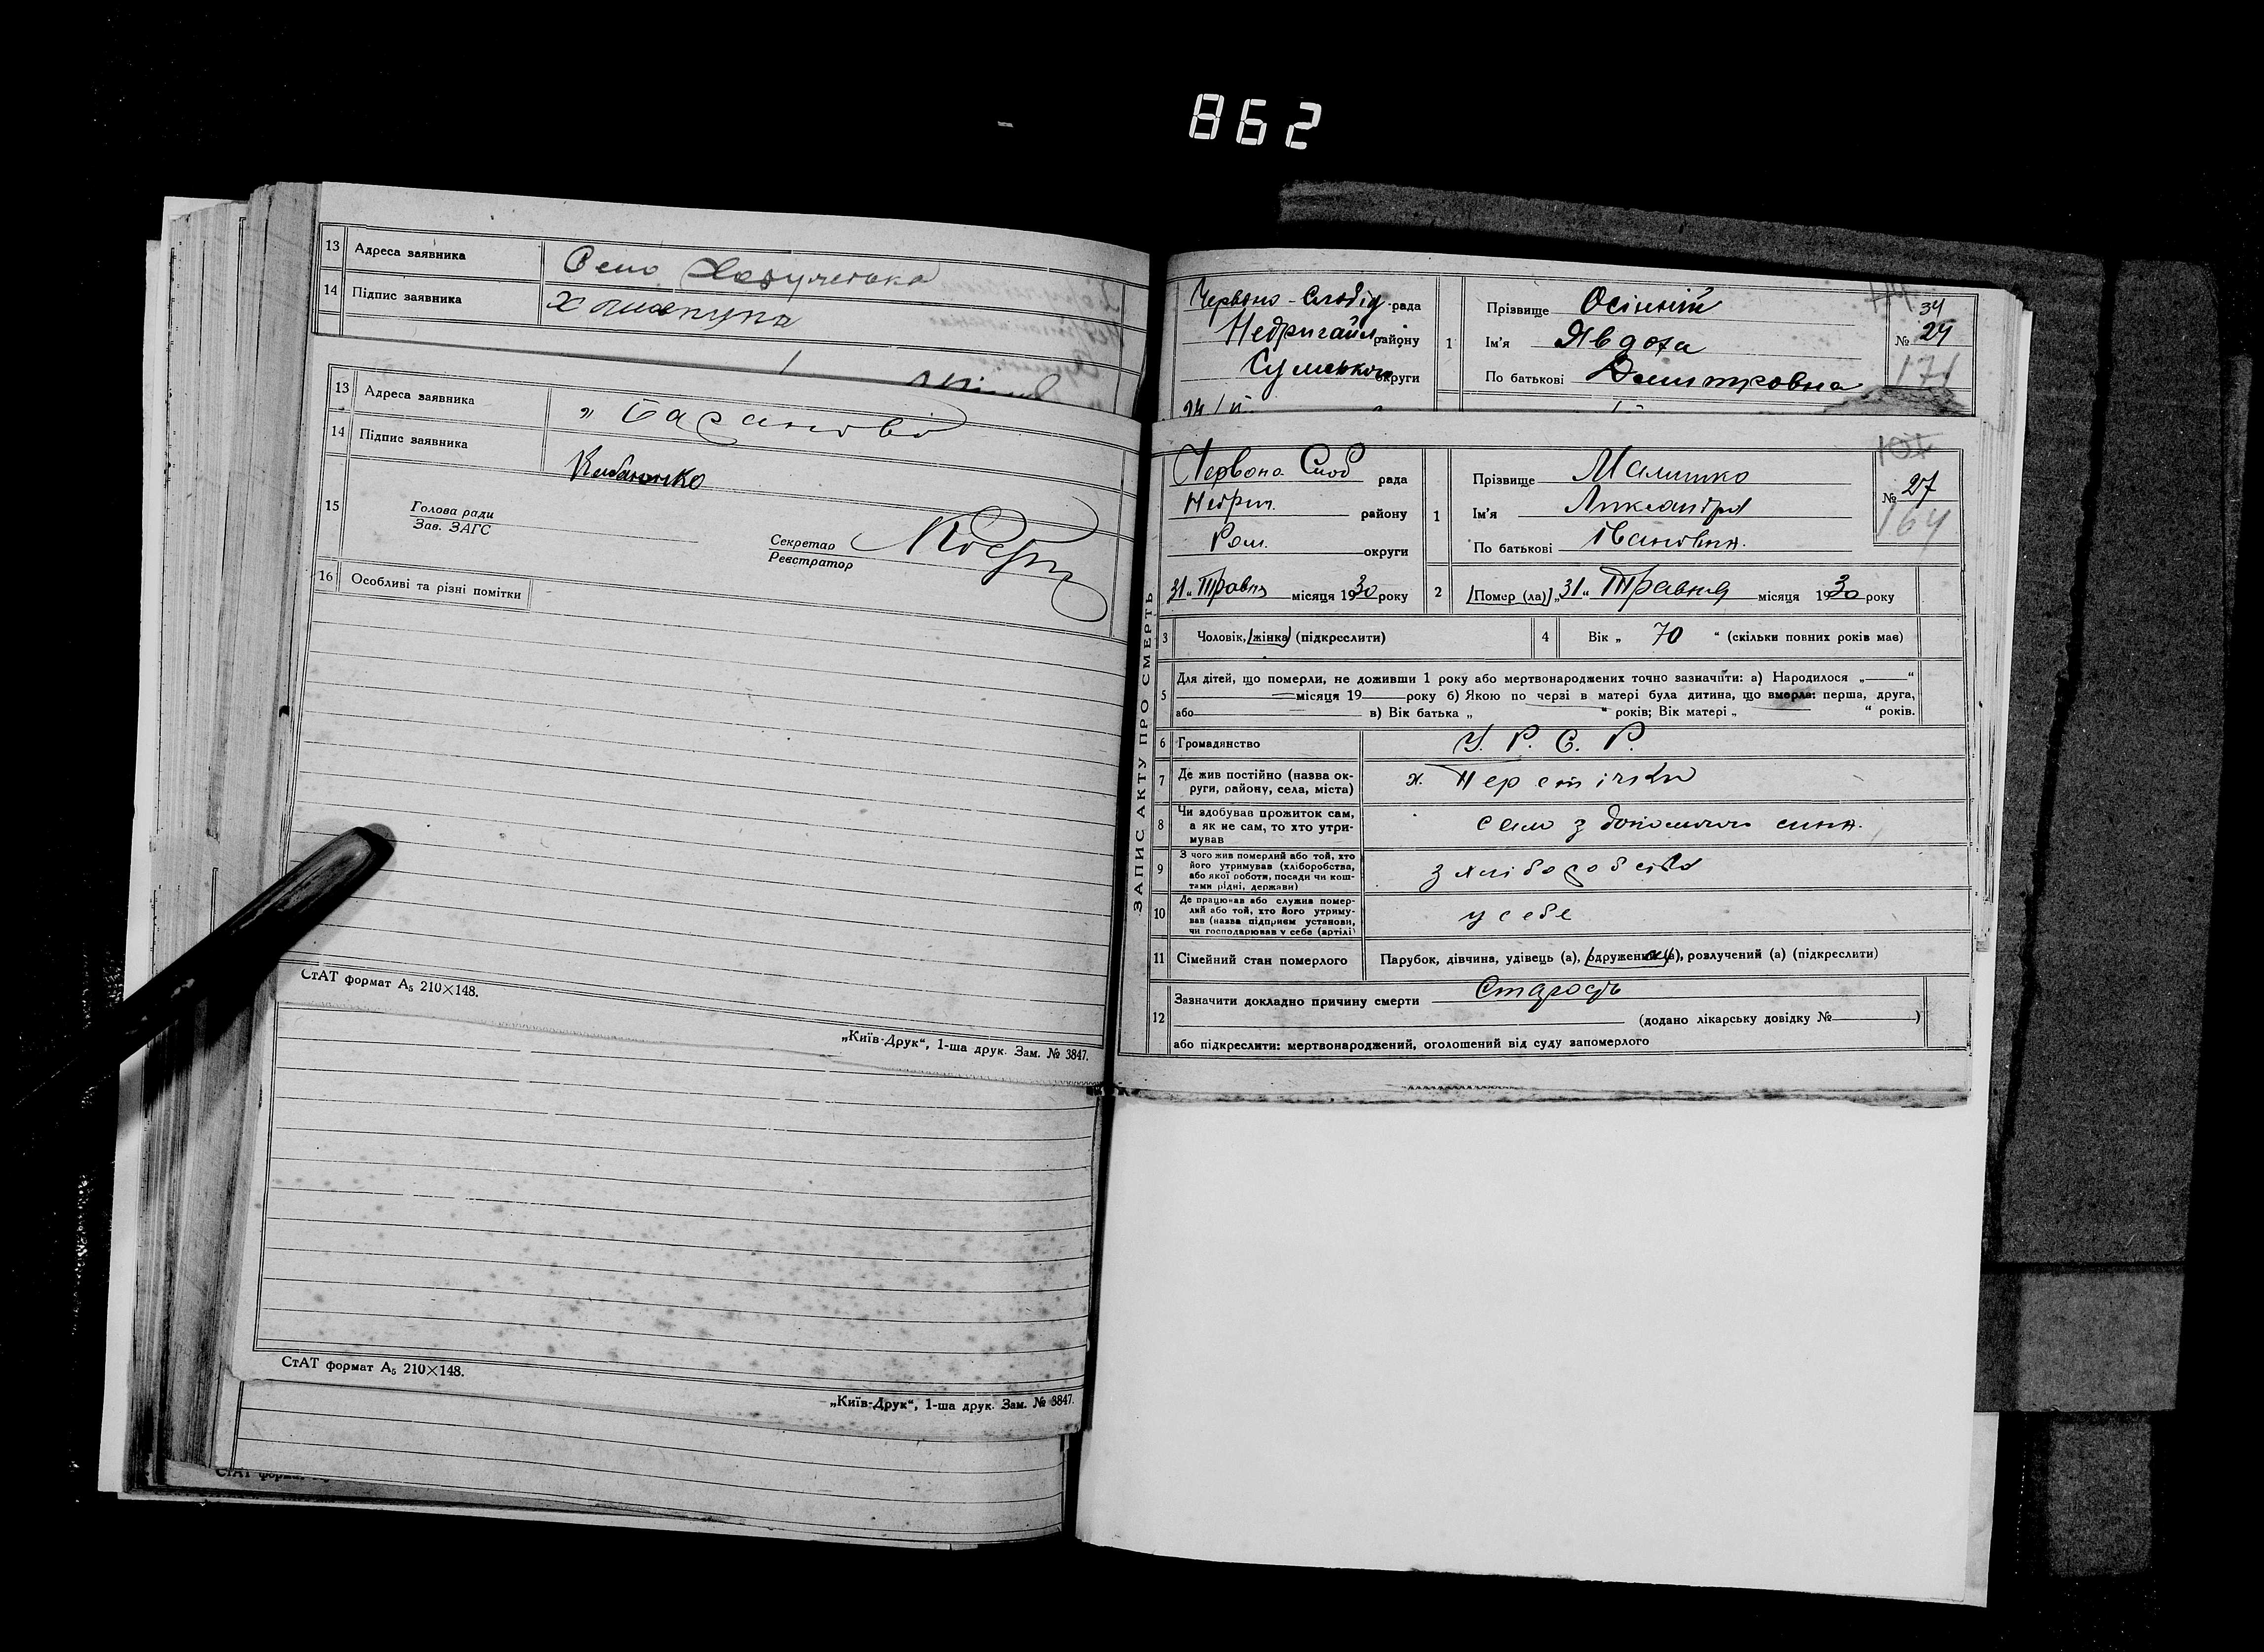 862
13 Адреса заявника Село
14 Підпис заявника
13 Адреса заявника "
14 Підпис заявника
15 Голова ради
Зав. ЗАГС
Секретар
Реєстратор
16 Особливі та різні помітки
СтАТ формат А5 210×148.
„Київ-Друк“, 1-ша друк. Зам. № 3847.
СтАТ формат А5 210×148.
„Київ-Друк“, 1-ша друк. Зам. № 3847.
СтАТ
Червоно-Слобід рада
Недригайл району
Сумської округи
1 Прізвище Осінній
Ім'я Явдоха
По батькові Дмитровна
34
№ 24
171
ЗАПИС АКТУ ПРО СМЕРТЬ
Червона Слоб рада
Недриг. району
Ром. округи
31 „ Травня місяця 1930 року
1 Прізвище Малишко
Ім'я Лександра
По батькові Івановна.
101
№ 27
164
2 Помер (ла) „31“ Травня місяця 1930 року
3 Чоловік, жінка (підкреслити)
4 Вік „ 70 “ (скільки повних років має)
5 Для дітей, що померли, не доживши 1 року або мертвонароджених точно зазначити: а) Народилося „ “
місяця 19 року б) Якою по черзі в матері була дитина, що вмерла: перша, друга,
або в) Вік батька „ “ років; Вік матері „ “ років.
6 Громадянство У. Р. С. Р.
7 Де жив постійно (назва ок-
руги, району, села, міста) х. Перетічки
8 Чи здобував прожиток сам,
а як не сам, то хто утри-
мував само з допомогою сина.
9 З чого жив померлий або той, хто
його утримував (хліборобства,
або якої роботи, посади чи кош-
тами рідні, держави) з хліборобства
10 Де працював або служив помер-
лий або той, хто його утриму-
вав (назва підприєм установи,
чи господарював у себе (артілі) у себе
11 Сімейний стан померлого Парубок, дівчина, удівець (а), одружений (а), розлучений (а) (підкреслити)
12 Зазначити докладно причину смерти Старость
(додано лікарську довідку № )
або підкреслити: мертвонароджений, оголошений від суду запомерлого